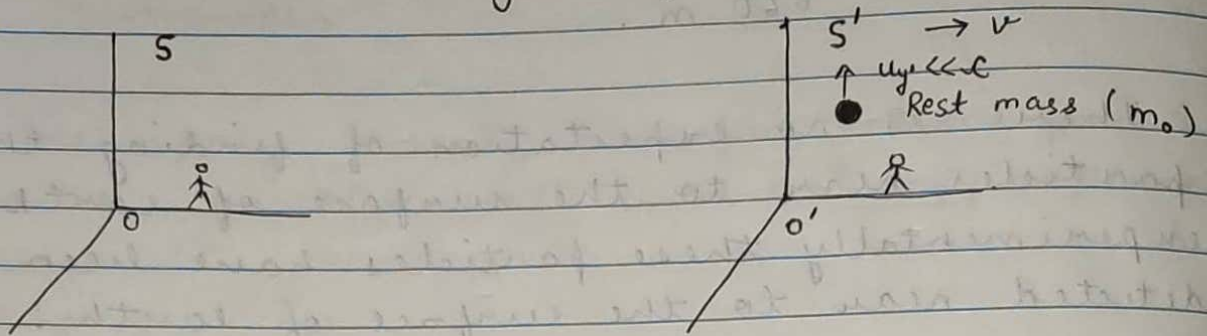 S
S' → v
u_y' << c
Rest mass (m₀)
O
O'